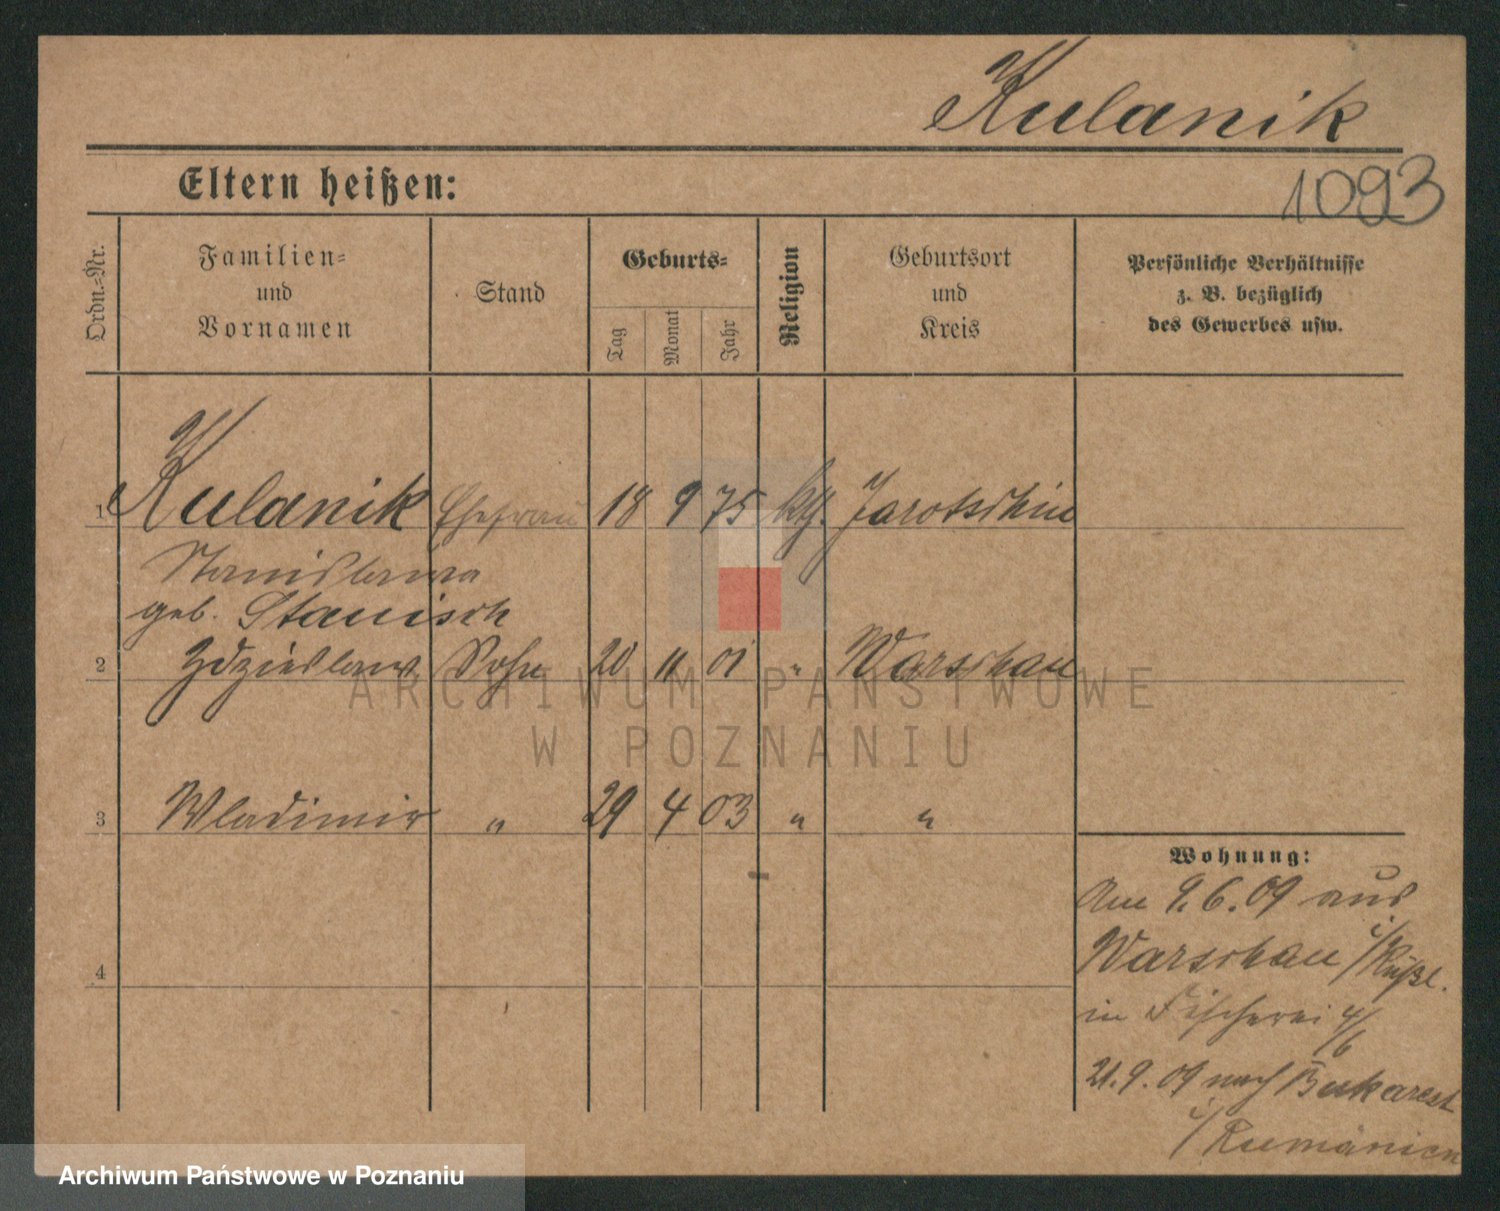 Kulanik
1093
Eltern heißen:
Ordn.-Nr.
Familien- und Vornamen
Stand
Geburts-
Tag
Monat
Jahr
Religion
Geburtsort und Kreis
Persönliche Verhältnisse
z. B. bezüglich
des Gewerbes usw.
1 Kulanik Ehefrau 18 9 75 kth. Jarotschin
Stanislawa
geb. Stanisch
2 Zdzislaw Sohn 20 11 01 " Warschau
3 Wladimir " 29 4 03 " "
4
Wohnung:
Am 9.6.09 aus
Warschau i/Rußl.
in Fischerei 4/6
21.9.09 nach Bukarest
i/Rumänien
ARCHIWUM PAŃSTWOWE
W POZNANIU
Archiwum Państwowe w Poznaniu